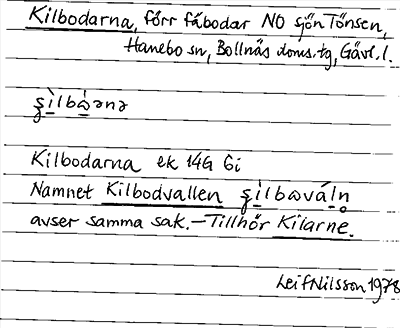 Kilbodarna, förr fäbodar NO sjön Tönsen,
Hanebo sn, Bollnäs doms. tg, Gävl. l.
Kilbodarna ek 14G 6i
Namnet Kilbodvallen
avser samma sak. – Tillhör Kilarne.
Leif Nilsson 1978